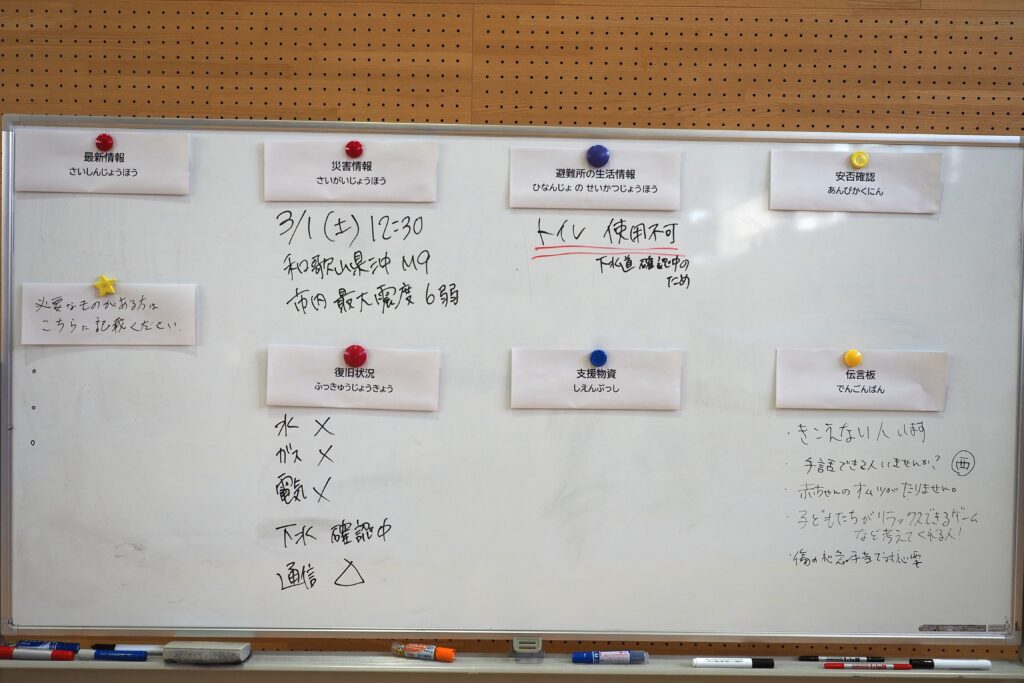 最新情報
さいしんじょうほう
災害情報
さいがいじょうほう
避難所の生活情報
ひなんじょ の せいかつじょうほう
安否確認
あんぴかくにん
3/1(土) 12:30
和歌山県沖 M9
市内 最大震度 6弱
トイレ 使用不可
下水道 確認中の
ため
必要なものがある方は
こちらに記載ください.
復旧状況
ふっきゅうじょうきょう
水 ×
ガス ×
電気 ×
下水 確認中
通信 △
支援物資
しえんぶっし
伝言板
でんごんばん
・きこえない人 います
・手話できる人いませんか? 西
・赤ちゃんのオムツがたりません。
・子どもたちがリラックスできるゲーム
など考えてくれる人!
・傷の応急手当て